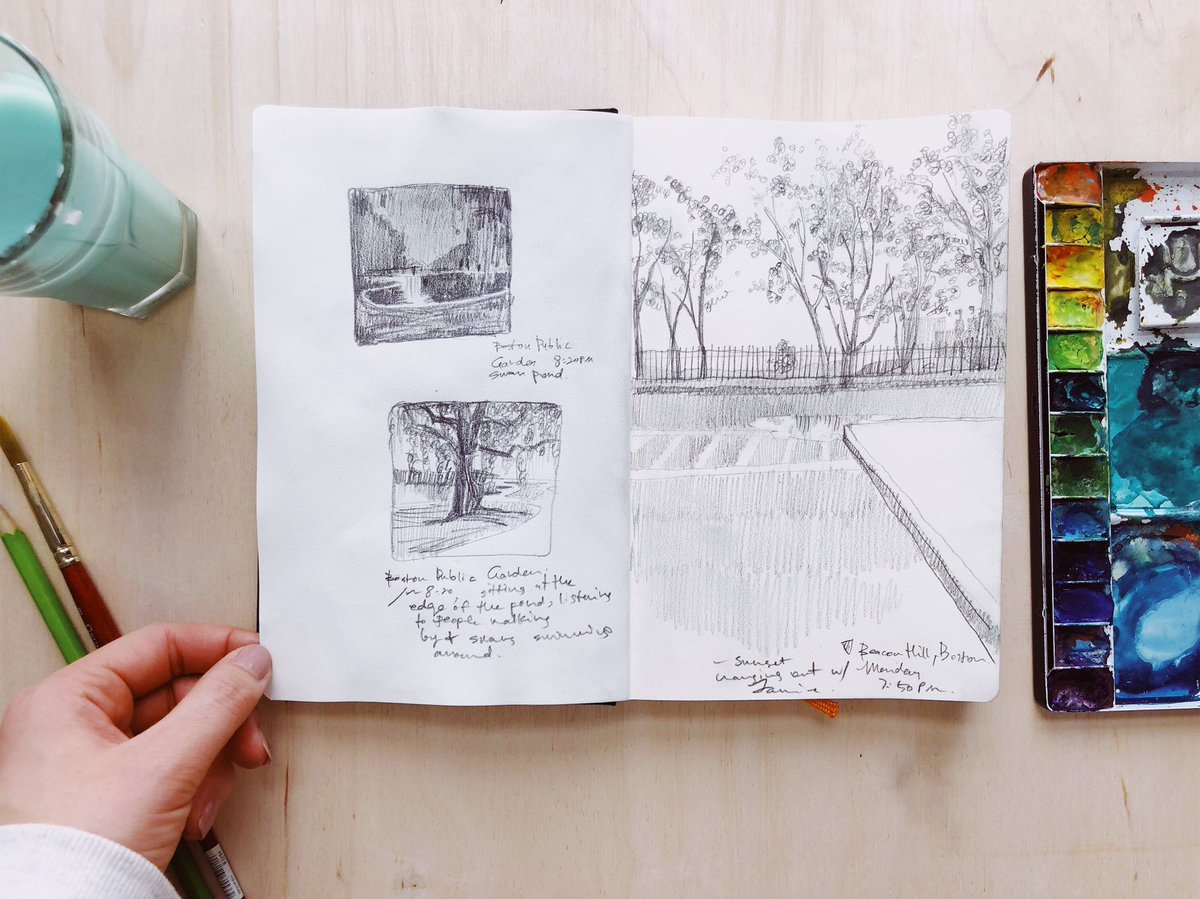 Boston Public
Garden 8:20pm
swan pond.
Boston Public Garden.
8:20 sitting at the
edge of the pond, listening
to people walking
by & swans swimming
around.
- sunset
hanging out w/
Beacon Hill, Boston
Monday
7:50pm.